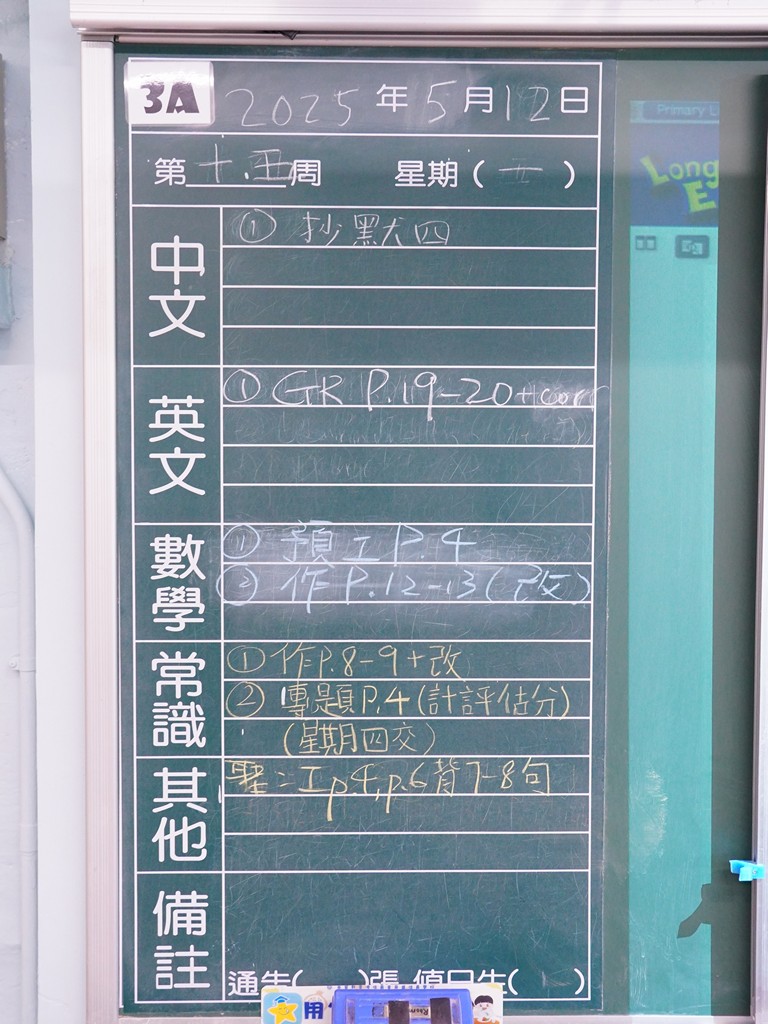 3A 2025年5月12日
第十五周 星期(一)
中文
① 抄默四
英文
① GR P.19-20+corr
數學
① 預工 P.4
② 作 P.12-13(改)
常識
① 作P.8-9+改
② 專題P.4(計評估分)
(星期四交)
其他
聖:工p.4,p.6背7-8句
備註
通告( )張 值日生( )
Primary L
Long
E
用